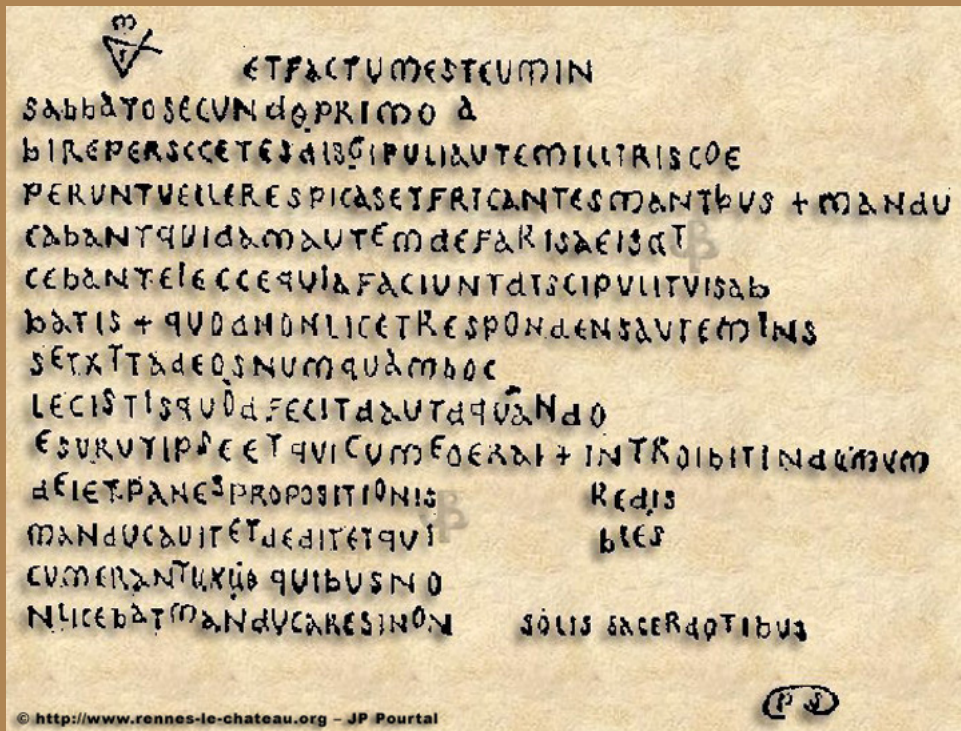 ETFACTUMESTEUMIN
SABBATOSECUNdOPRIMO A
bIREPERSCCETESdISGIPULIAUTEMILLITRISCOE
PERUNTUELLERESPICASETFRICANTESMANTbUS + MANdU
CABANTQUIDAMAUTEMdEFARISAEISAT
CEBANTEIECCEQUIAFACIUNTdISCIPULITUISAb
BATIS + QUOdNONLICETRESPONdENSAUTEMINS
SETXTTAdEOSNUMQUAMbOC
LECISTISQUOdFECITdAUTdQUANdO
ESURUTIPSEETQUICUMEOERAI + INTROIBITINdUMUM
dEIETPANESPROPOSITIONIS REdIS
MANdUCAUITETdEdITETQUI bLES
CUMERANTUXUO QUIBUSNO
NLICEBATMANdUCARESINON SOLIS SACERdOTIbUS
PS
© http://www.rennes-le-chateau.org – JP Pourtal